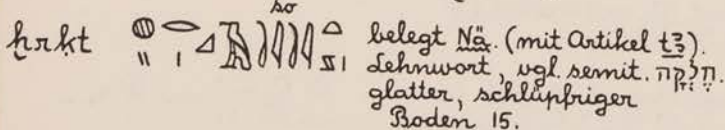 so
ḫrḳt belegt Nä. (mit Artikel tꜣ).
Lehnwort, vgl. semit. חֶלְקָה.
glatter, schlüpfriger
Boden 15.